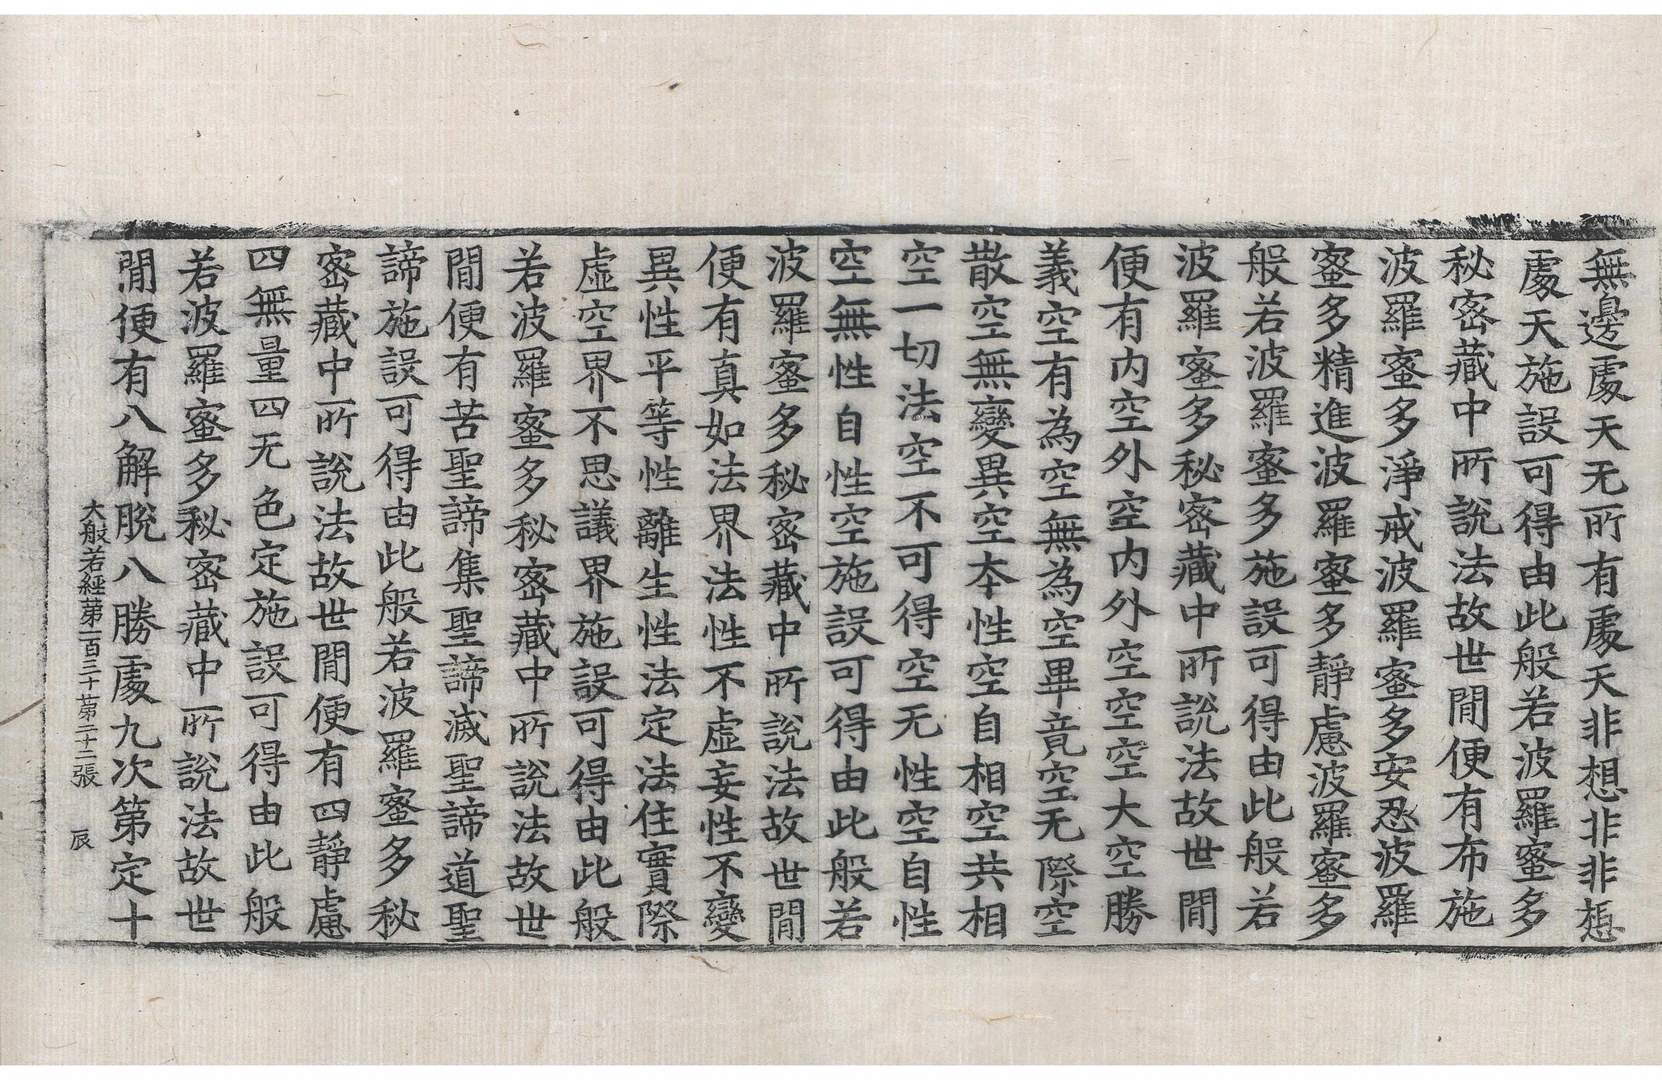 無邊處天无所有處天非想非非想
處天施設可得由此般若波羅蜜多
秘密藏中所說法故世間便有布施
波羅蜜多淨戒波羅蜜多安忍波羅
蜜多精進波羅蜜多靜慮波羅蜜多
般若波羅蜜多施設可得由此般若
波羅蜜多秘密藏中所說法故世間
便有内空外空内外空空空大空勝
義空有為空無為空畢竟空无際空
散空無變異空本性空自相空共相
空一切法空不可得空无性空自性
空無性自性空施設可得由此般若
波羅蜜多秘密藏中所說法故世間
便有真如法界法性不虛妄性不變
異性平等性離生性法定法住實際
虛空界不思議界施設可得由此般
若波羅蜜多秘密藏中所說法故世
間便有苦聖諦集聖諦滅聖諦道聖
諦施設可得由此般若波羅蜜多秘
密藏中所說法故世間便有四靜慮
四無量四无色定施設可得由此般
若波羅蜜多秘密藏中所說法故世
間便有八解脫八勝處九次第定十
大般若經第一百三十 第二十二張 辰